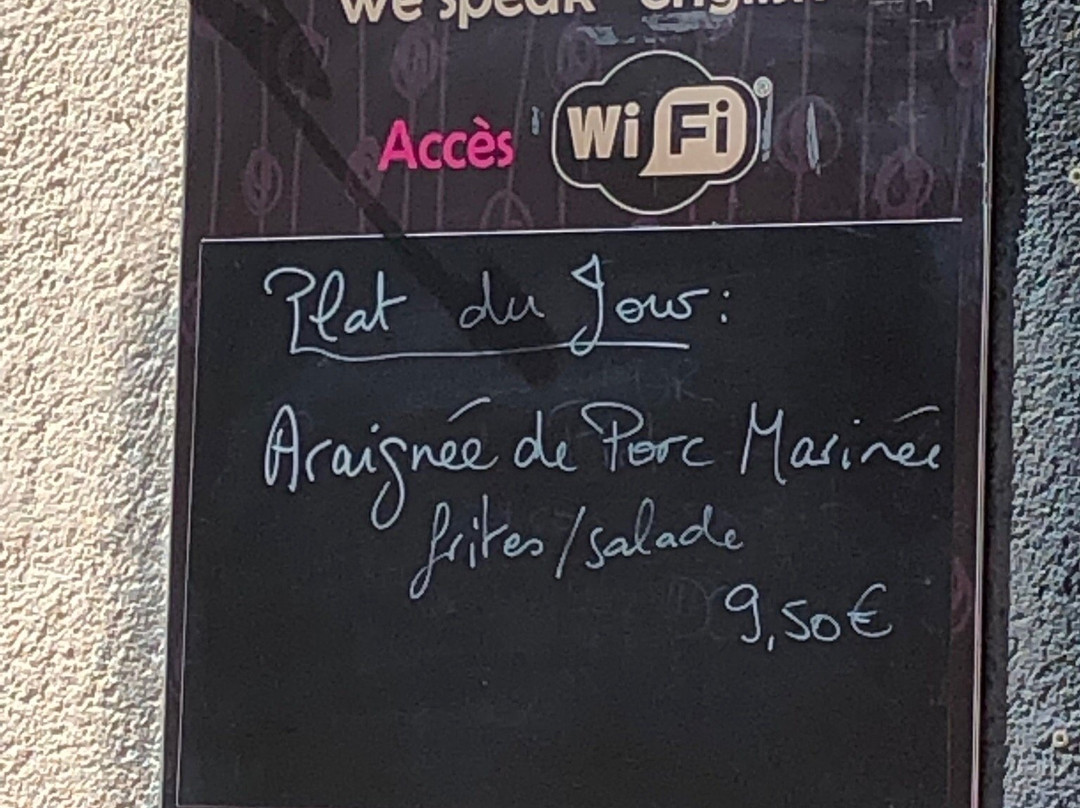 We speak english
Accès WiFi®
Plat du Jour :
Araignée de Porc Marinée
frites/salade
9,50€